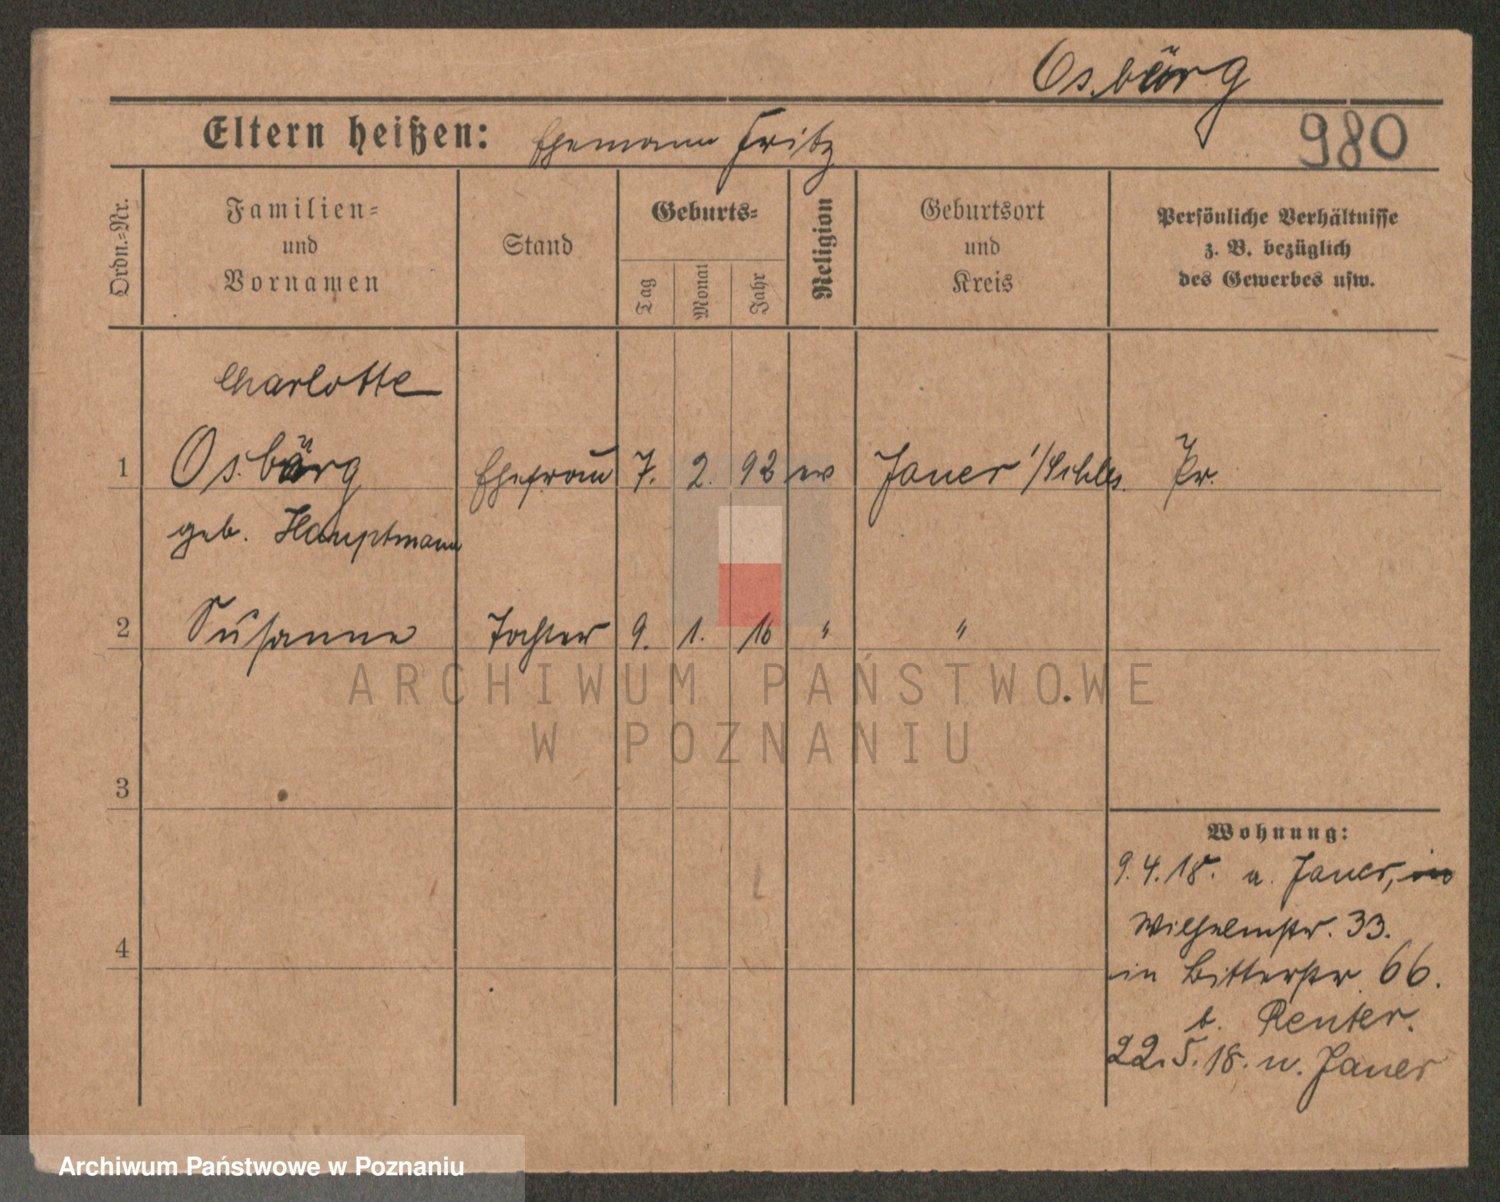 Osbürg
980
Eltern heißen: Ehemann Fritz
Ordn.-Nr.
Familien-
und
Vornamen
Stand
Geburts-
Tag
Monat
Jahr
Religion
Geburtsort
und
Kreis
Persönliche Verhältnisse
z. B. bezüglich
des Gewerbes usw.
Charlotte
1 Osbürg Ehefrau 7. 2. 92 ev Jauer /Schles. Pr.
geb. Hauptmann
2 Susanne Tochter 9. 1. 16 " "
ARCHIWUM PAŃSTWOWE
W POZNANIU
3
Wohnung:
9.4.18. a. Jauer, in
Wilhelmstr. 33.
4
in Bitterstr. 66.
b. Renter.
22.5.18. n. Jauer
Archiwum Państwowe w Poznaniu